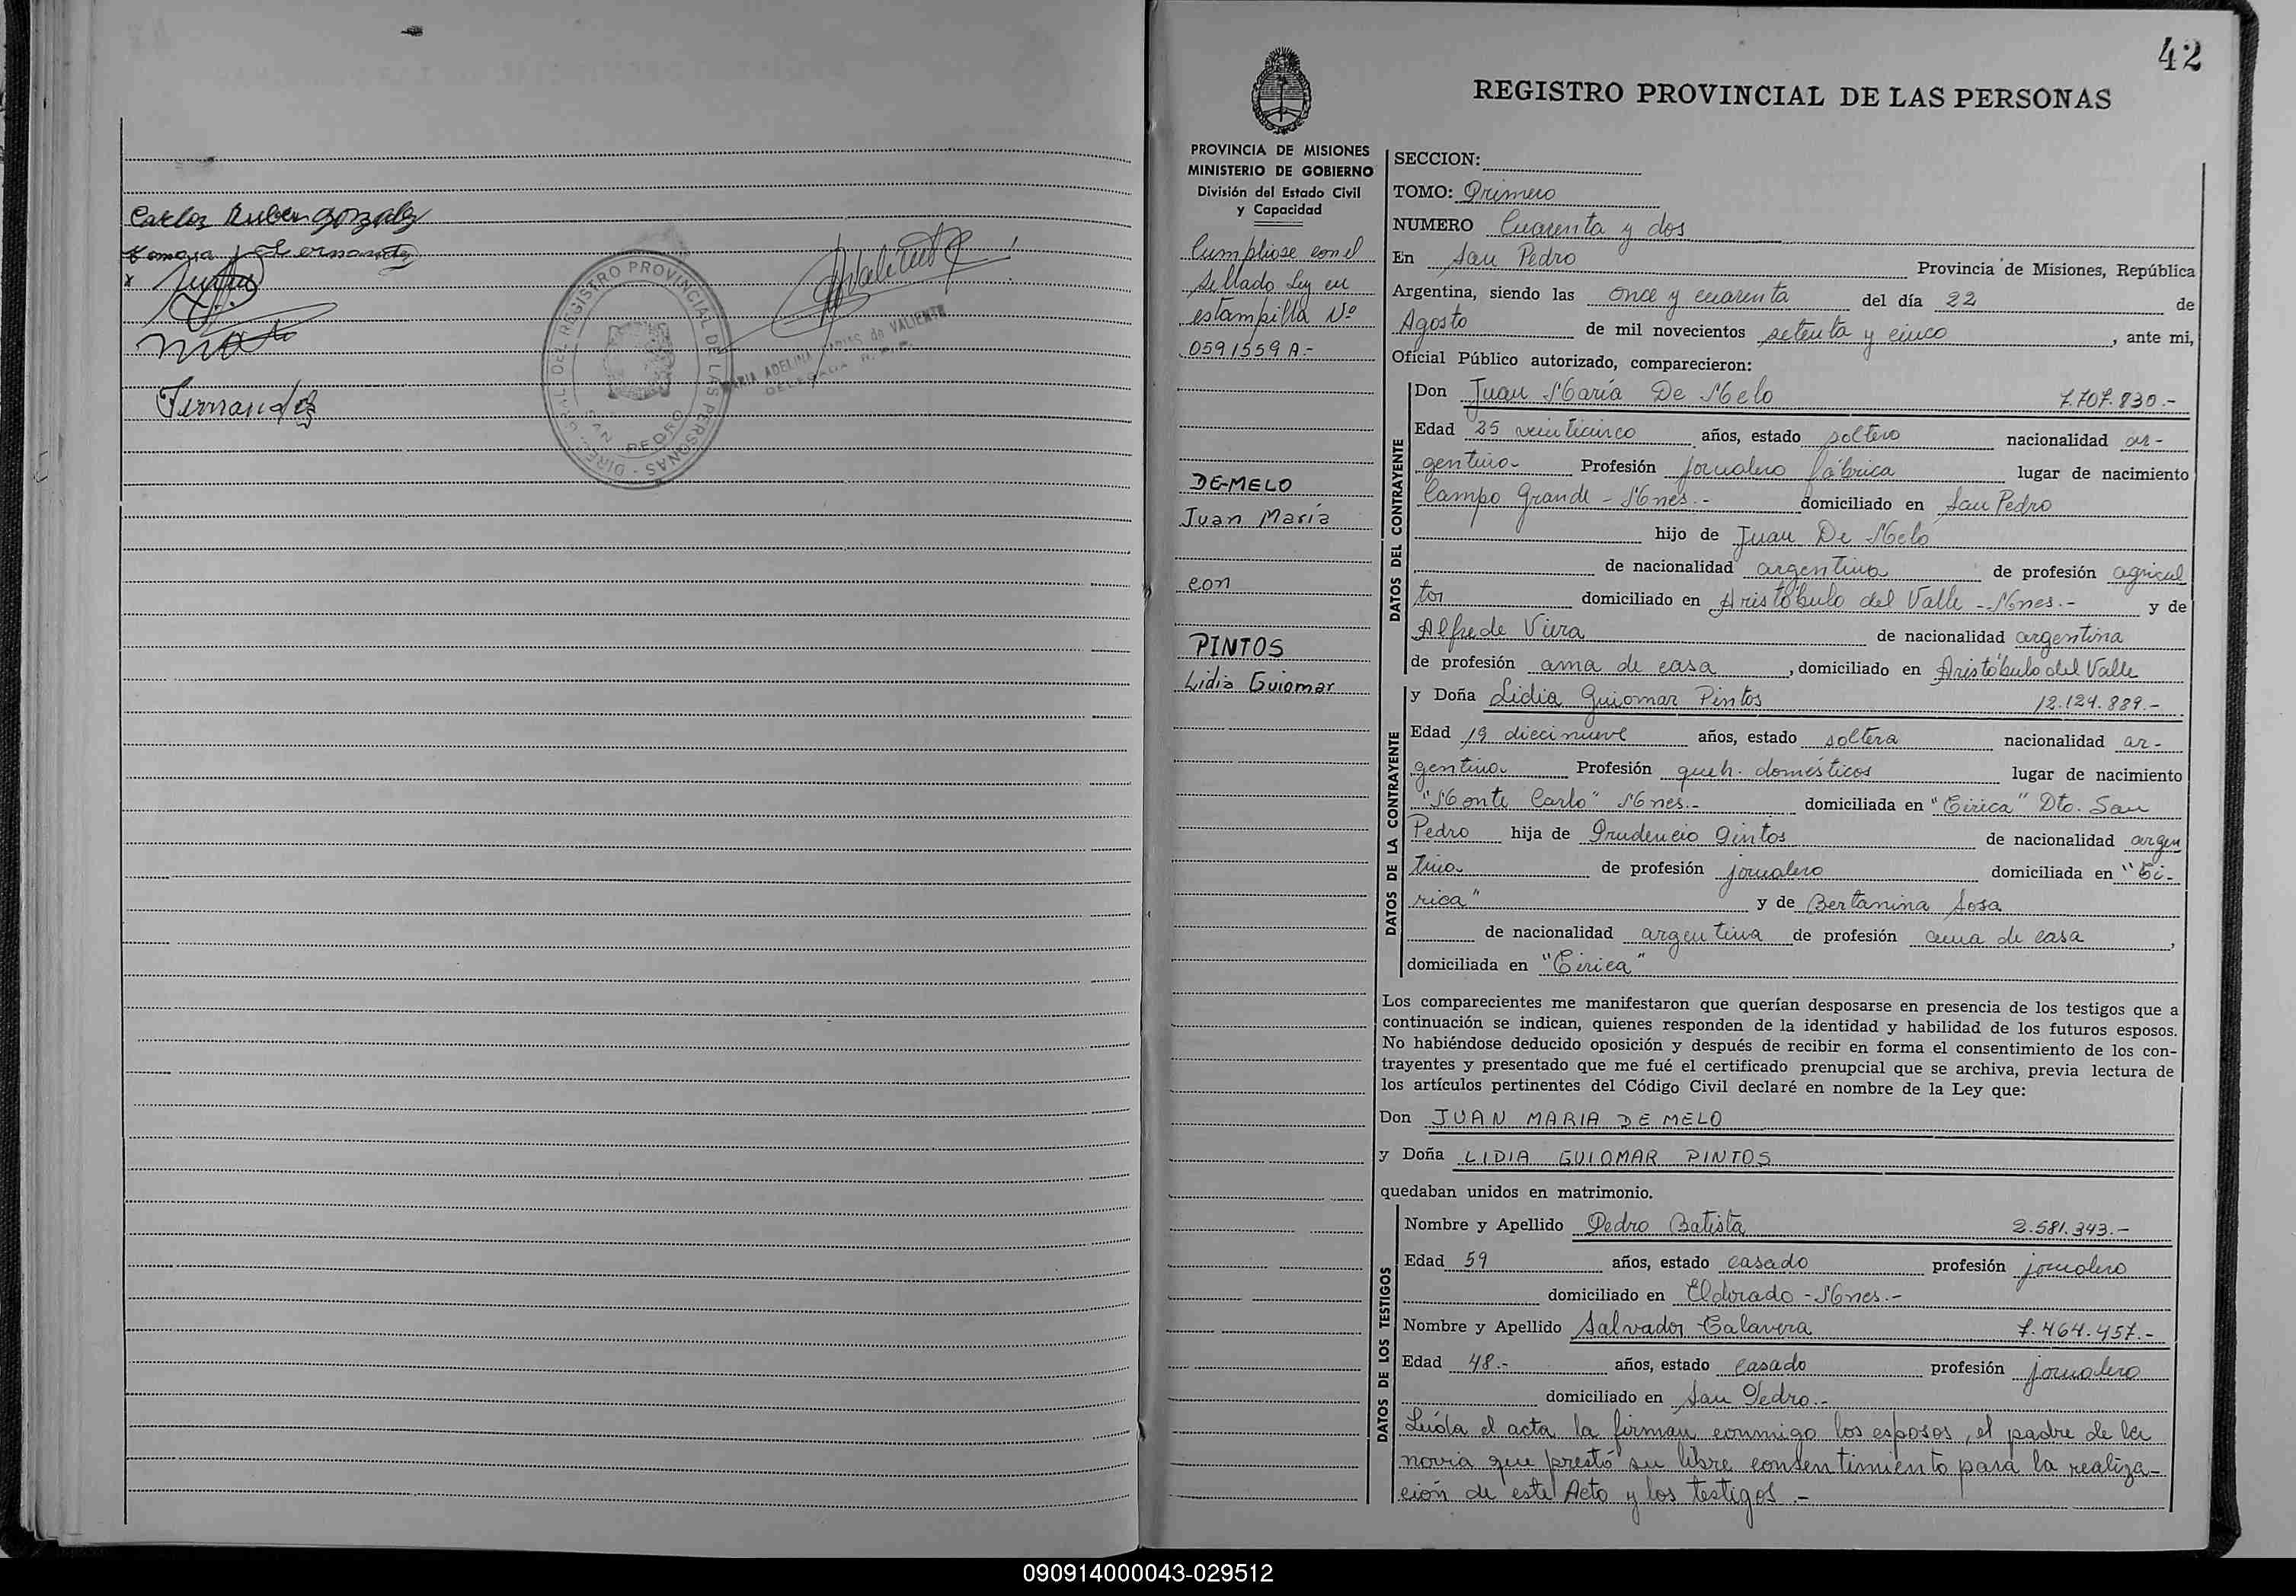 Carlos Ruben Gonzalez
Fernandez
DIREC. GRAL. DEL REGISTRO PROVINCIAL DE LAS PERSONAS
SAN PEDRO
MARIA ADELINA de VALIENTE
DELEGADA
42
REGISTRO PROVINCIAL DE LAS PERSONAS
PROVINCIA DE MISIONES
MINISTERIO DE GOBIERNO
División del Estado Civil
y Capacidad
Cumpliose con el
Sellado Ley en
estampilla Nº
0591559 A.-
DE-MELO
Juan María
con
PINTOS
Lidia Guiomar
SECCION:
TOMO: Primero
NUMERO Cuarenta y dos
En San Pedro Provincia de Misiones, República
Argentina, siendo las once y cuarenta del día 22 de
Agosto de mil novecientos setenta y cinco, ante mi,
Oficial Público autorizado, comparecieron:
DATOS DEL CONTRAYENTE
Don Juan María De Melo 7.707.830.-
Edad 25 veinticinco años, estado soltero nacionalidad ar-
gentina Profesión jornalero fábrica lugar de nacimiento
Campo Grande - Mnes.- domiciliado en San Pedro
hijo de Juan De Melo
de nacionalidad argentina de profesión agricul
tor domiciliado en Aristóbulo del Valle - Mnes.- y de
Alfrede Viera de nacionalidad argentina
de profesión ama de casa, domiciliado en Aristóbulo del Valle
DATOS DE LA CONTRAYENTE
y Doña Lidia Guiomar Pintos 12.124.889.-
Edad 19 diecinueve años, estado soltera nacionalidad ar-
gentina Profesión queh. domésticos lugar de nacimiento
"Monte Carlo" Mnes.- domiciliada en "Tirica" Dto. San
Pedro hija de Prudencio Pintos de nacionalidad argen
tina de profesión jornalero domiciliada en "Ti-
rica" y de Bertanina Sosa
de nacionalidad argentina de profesión ama de casa,
domiciliada en "Tirica"
Los comparecientes me manifestaron que querían desposarse en presencia de los testigos que a
continuación se indican, quienes responden de la identidad y habilidad de los futuros esposos.
No habiéndose deducido oposición y después de recibir en forma el consentimiento de los con-
trayentes y presentado que me fué el certificado prenupcial que se archiva, previa lectura de
los artículos pertinentes del Código Civil declaré en nombre de la Ley que:
Don JUAN MARIA DE MELO
y Doña LIDIA GUIOMAR PINTOS
quedaban unidos en matrimonio.
DATOS DE LOS TESTIGOS
Nombre y Apellido Pedro Batista 2.581.343.-
Edad 59 años, estado casado profesión jornalero
domiciliado en Eldorado - Mnes.-
Nombre y Apellido Salvador Talavera 7.464.457.-
Edad 48.- años, estado casado profesión jornalero
domiciliado en San Pedro.-
Leída el acta la firman conmigo los esposos, el padre de la
novia que prestó su libre consentimiento para la realiza-
ción de este Acto y los testigos.-
090914000043-029512